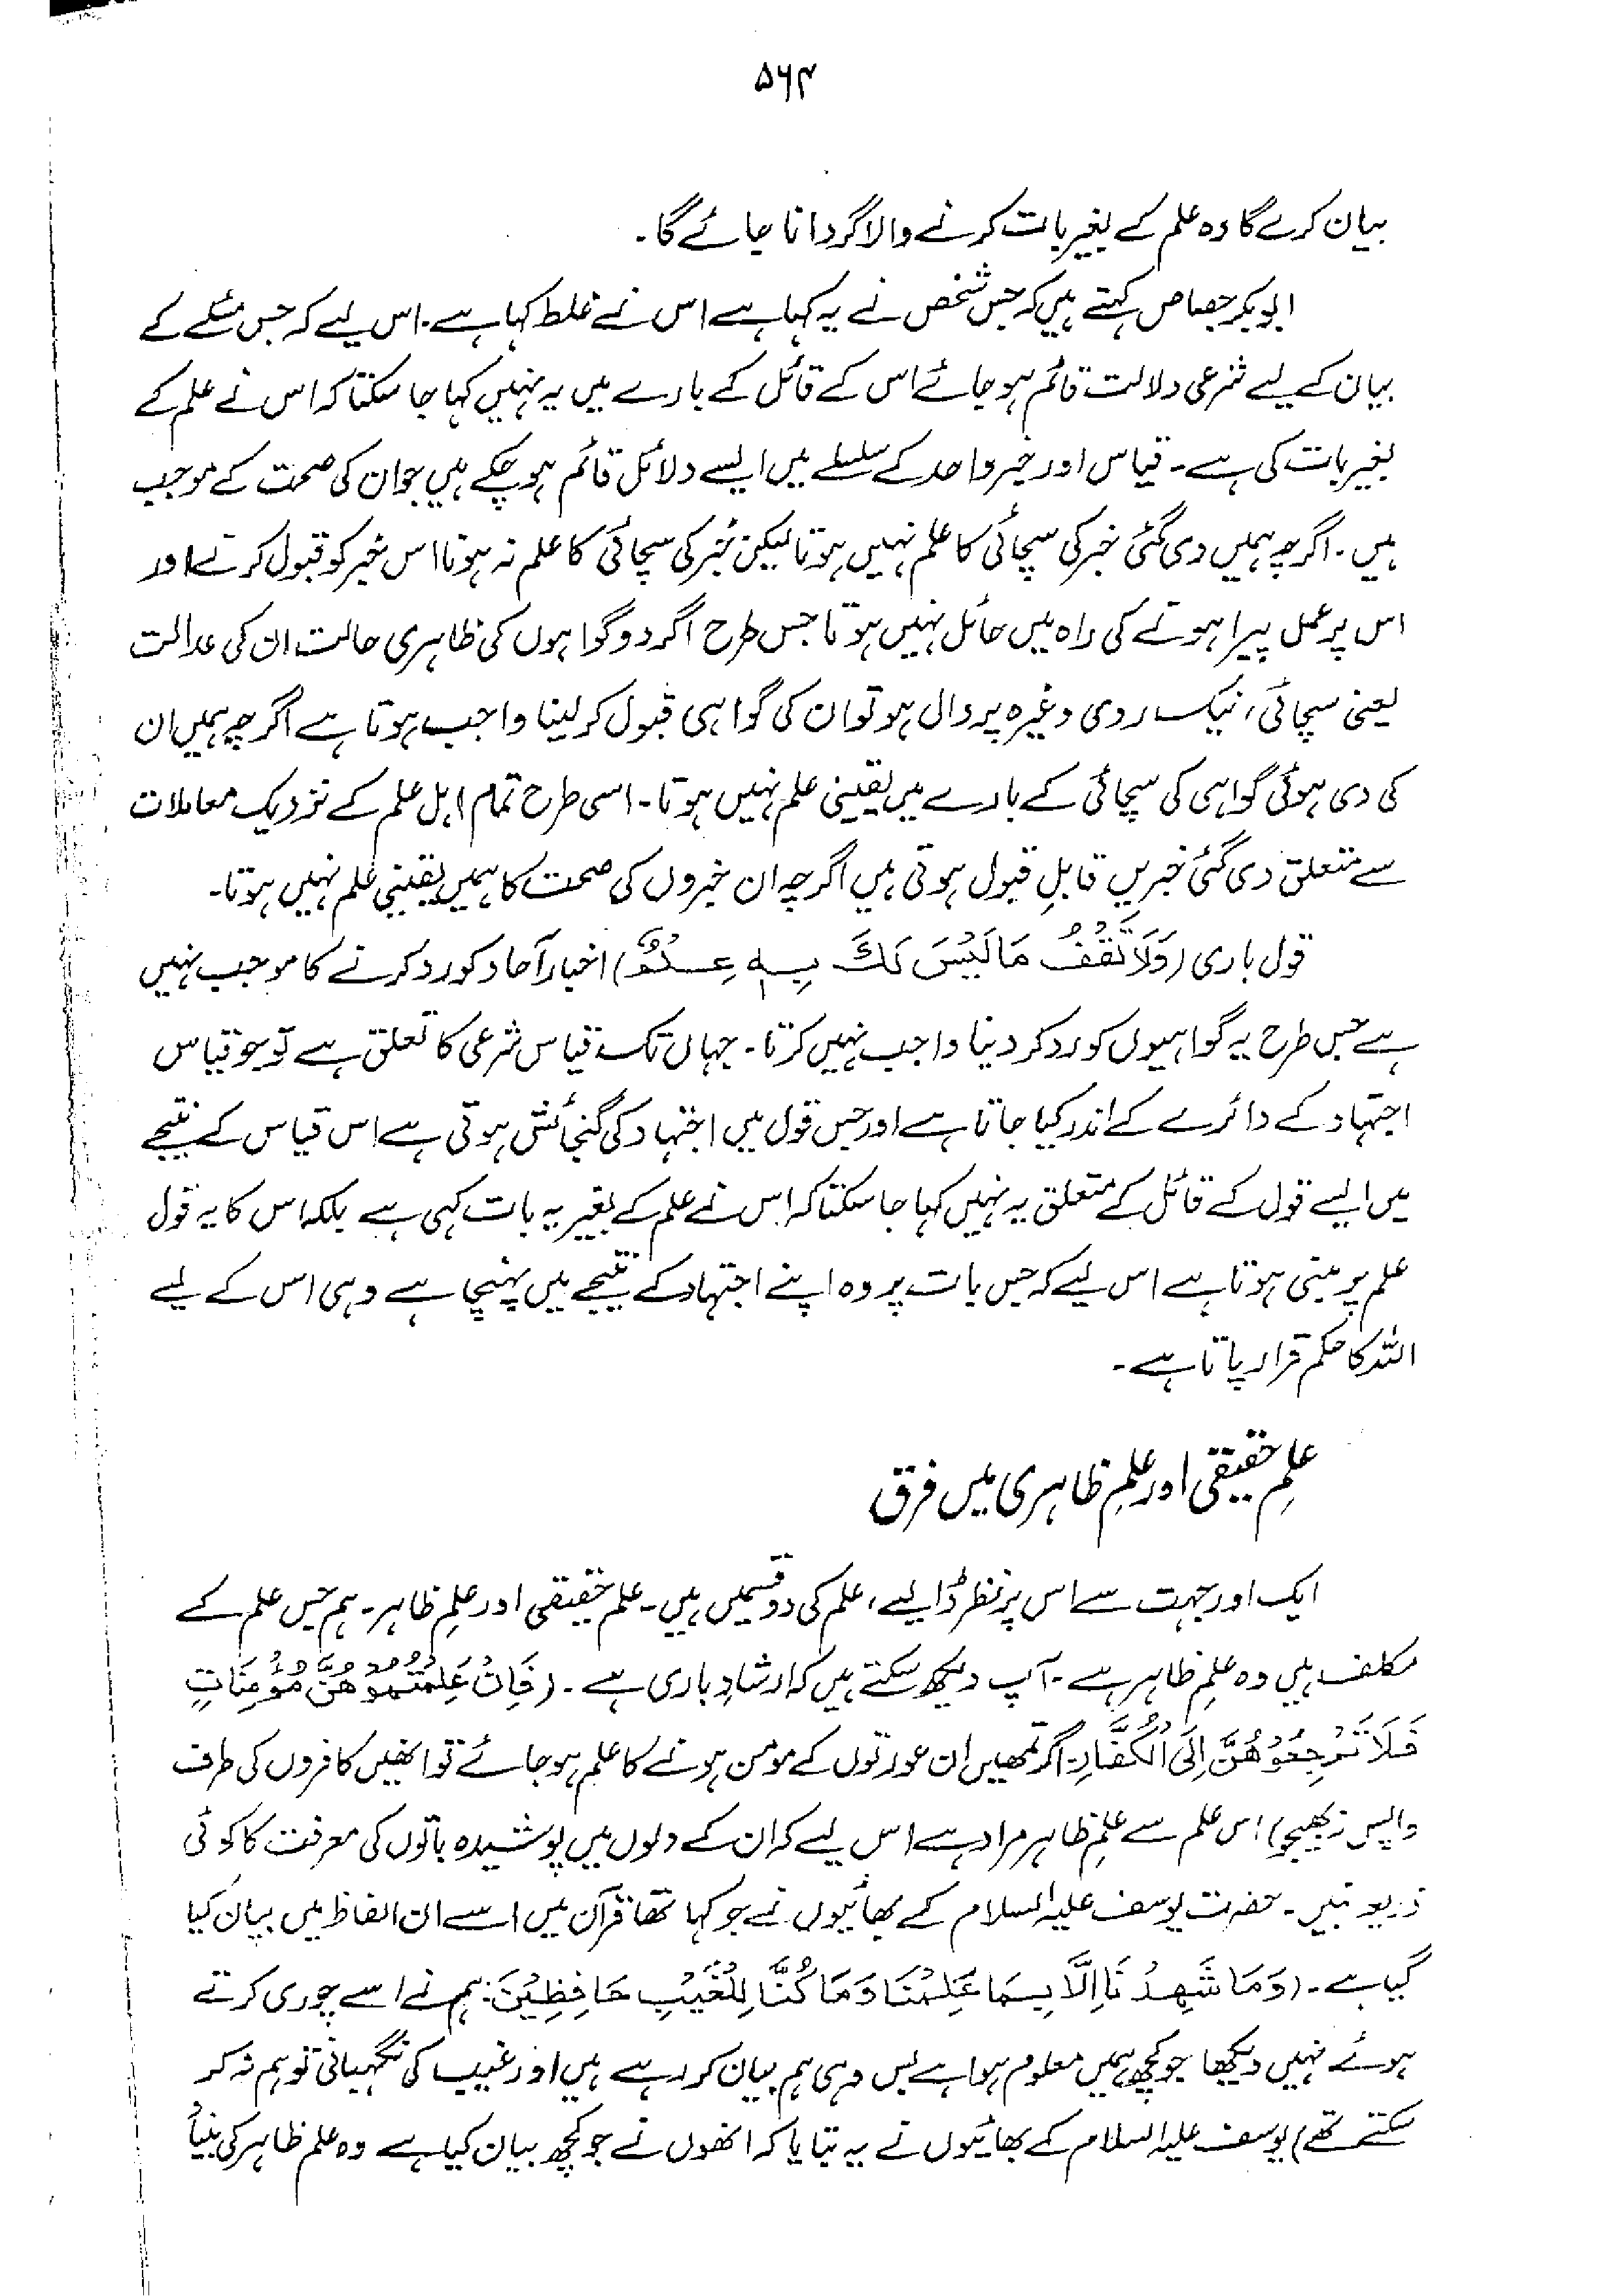 ۵۶۴
بیان کرے گا وہ علم کے بغیر بات کرنے والا گردانا جائے گا۔
ابوبکر جصاص کہتے ہیں کہ جس شخص نے یہ کہا ہے اس نے غلط کہا ہے۔ اس لیے کہ جس مسئلے کے
بیان کے لیے شرعی دلالت قائم ہو جائے اس کے قائل کے بارے میں یہ نہیں کہا جا سکتا کہ اس نے علم کے
بغیر بات کی ہے۔ قیاس اور خبر واحد کے سلسلے میں ایسے دلائل قائم ہو چکے ہیں جو ان کی صحت کے موجب
ہیں۔ اگرچہ ہمیں دی گئی خبر کی سچائی کا علم نہیں ہوتا لیکن خبر کی سچائی کا علم نہ ہونا اس خبر کو قبول کرنے اور
اس پر عمل پیرا ہونے کی راہ میں حائل نہیں ہوتا جس طرح اگر دو گواہوں کی ظاہری حالت ان کی عدالت
یعنی سچائی، نیک روی وغیرہ پر دال ہو تو ان کی گواہی قبول کر لینا واجب ہوتا ہے اگرچہ ہمیں ان
کی دی ہوئی گواہی کی سچائی کے بارے میں یقینی علم نہیں ہوتا۔ اسی طرح تمام اہل علم کے نزدیک معاملات
سے متعلق دی گئی خبریں قابلِ قبول ہوتی ہیں اگرچہ ان خبروں کی صحت کا ہمیں یقینی علم نہیں ہوتا۔
قول باری (وَلَا تَقْفُ مَا لَيْسَ لَكَ بِهٖ عِلْمٌ) اخبار آحاد کو رد کرنے کا موجب نہیں
ہے جس طرح یہ گواہیوں کو رد کر دینا واجب نہیں کرتا۔ جہاں تک قیاس شرعی کا تعلق ہے تو جو قیاس
اجتہاد کے دائرے کے اندر کیا جاتا ہے اور جس قول میں اجتہاد کی گنجائش ہوتی ہے اس قیاس کے نتیجے
میں ایسے قول کے قائل کے متعلق یہ نہیں کہا جا سکتا کہ اس نے علم کے بغیر یہ بات کہی ہے بلکہ اس کا یہ قول
علم پر مبنی ہوتا ہے اس لیے کہ جس بات پر وہ اپنے اجتہاد کے نتیجے میں پہنچا ہے وہی اس کے لیے
اللہ کا حکم قرار پاتا ہے۔
علمِ حقیقی اور علمِ ظاہری میں فرق
ایک اور جہت سے اس پر نظر ڈالیے، علم کی دو قسمیں ہیں۔ علم حقیقی اور علمِ ظاہر۔ ہم جس علم کے
مکلف ہیں وہ علمِ ظاہر ہے۔ آپ دیکھ سکتے ہیں کہ ارشادِ باری ہے۔ (فَاِنْ عَلِمْتُمُوْهُنَّ مُؤْمِنَاتٍ
فَلَا تَرْجِعُوْهُنَّ اِلَى الْكُفَّارِ: اگر تمھیں ان عورتوں کے مومن ہونے کا علم ہو جائے تو انھیں کافروں کی طرف
واپس نہ بھیجو) اس علم سے علمِ ظاہر مراد ہے اس لیے کہ ان کے دلوں میں پوشیدہ باتوں کی معرفت کا کوئی
ذریعہ نہیں۔ حضرت یوسف علیہ السلام کے بھائیوں نے جو کہا تھا قرآن میں اسے ان الفاظ میں بیان کیا
گیا ہے۔ (وَمَا شَهِدْنَا اِلَّا بِمَا عَلِمْنَا وَمَا كُنَّا لِلْغَيْبِ حَافِظِيْنَ: ہم نے اسے چوری کرتے
ہوئے نہیں دیکھا جو کچھ ہمیں معلوم ہوا ہے بس وہی ہم بیان کر رہے ہیں اور غیب کی نگہبانی تو ہم نہ کر
سکتے تھے) یوسف علیہ السلام کے بھائیوں نے یہ بتایا کہ انھوں نے جو کچھ بیان کیا ہے وہ علم ظاہر کی بنیاد